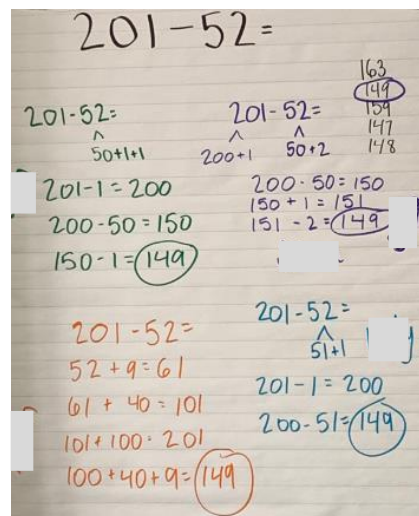 201-52=
163
149
159
147
148
201-52=
50+1+1
201-1=200
200-50=150
150-1=149
201-52=
200+1 50+2
200-50=150
150+1=151
151-2=149
201-52=
52+9=61
61+40=101
101+100=201
100+40+9=149
201-52=
51+1
201-1=200
200-51=149